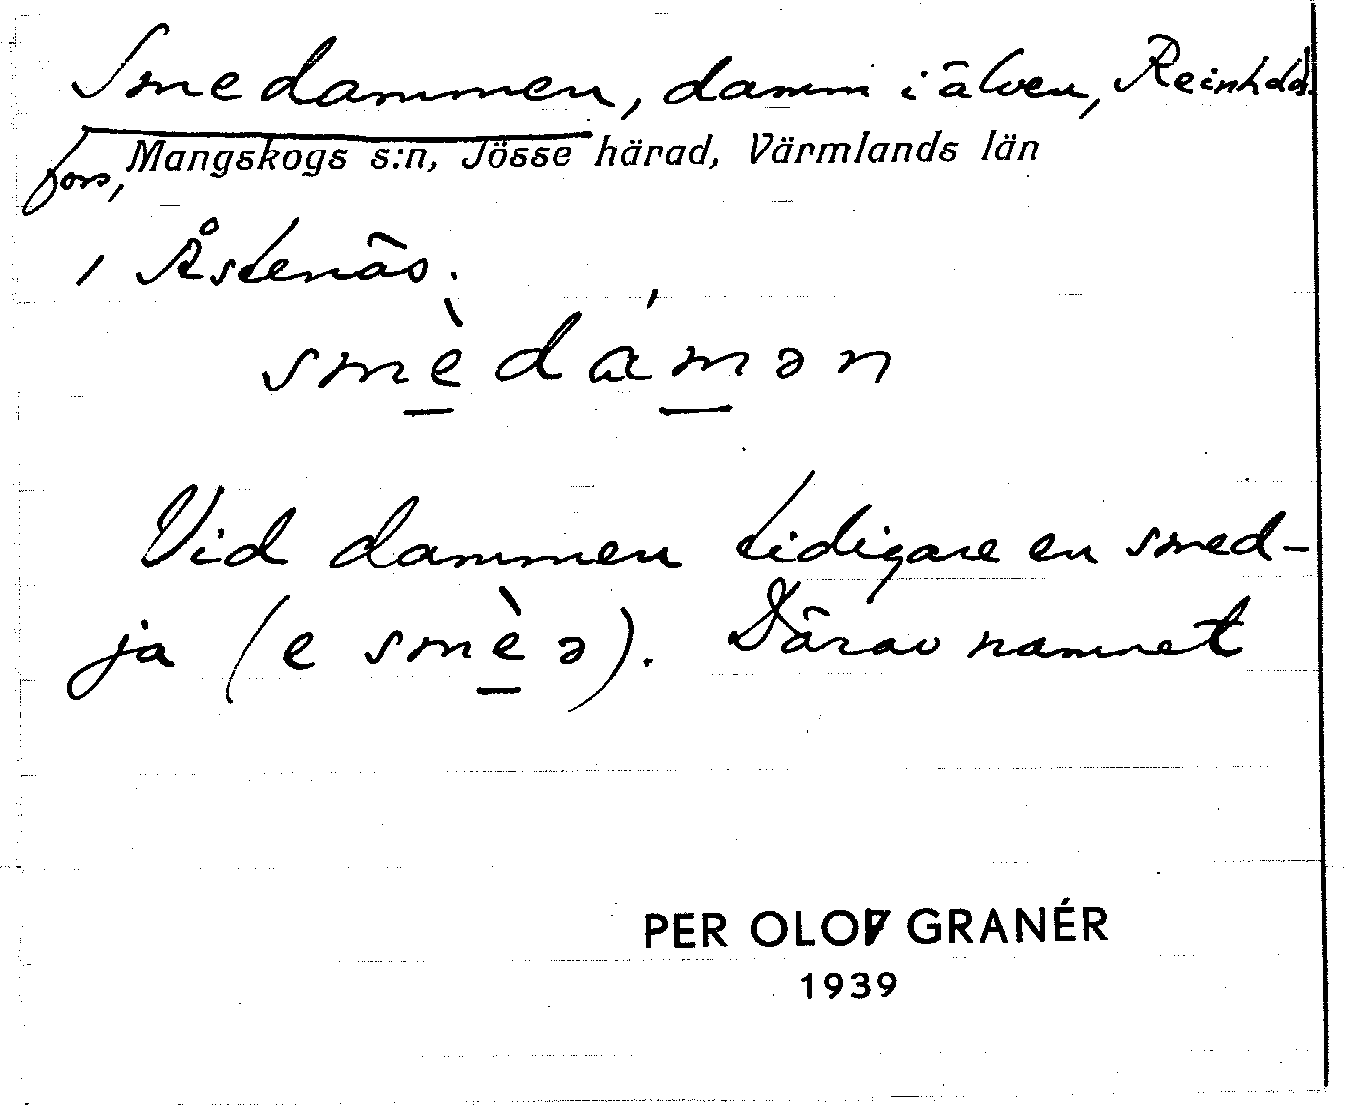 Smedammen, damm i älven, Reinholds
fors, Mangskogs s:n, Jösse härad, Värmlands län
1 Åstenäs.
smèdámən
Vid dammen tidigare en smed-
ja (e smèə). Därav namnet
PER OLOF GRANÉR
1939